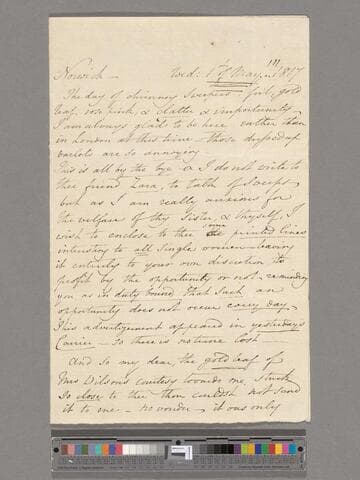 Norwich — Wed: 1st of May 1817
The day of chimney sweepers — foil, gold
leaf, rose pink, & clatter & importunity
I am always glad to be here rather than
in London at this time — those dressed up
varlets are so annoying
This is all by the bye — & I do not write to
thee friend Zara, to talk of Sweeps
but as I am really anxious for
the welfare of thy Sister, & thyself, I
wish to enclose to thee some printed lines
interesting to all Single women — leaving
it entirely to your own discretion to
profit by the opportunity or not — reminding
you as in duty bound, that such an
opportunity does not occur every day
This advertisement appeared in yesterdays
Courier — so there is no time lost —
And so my dear, the gold leaf of
Mrs Dilsons courtesy towards me, stuck
so close to thee thou couldst not send
it to me — no wonder — it was only